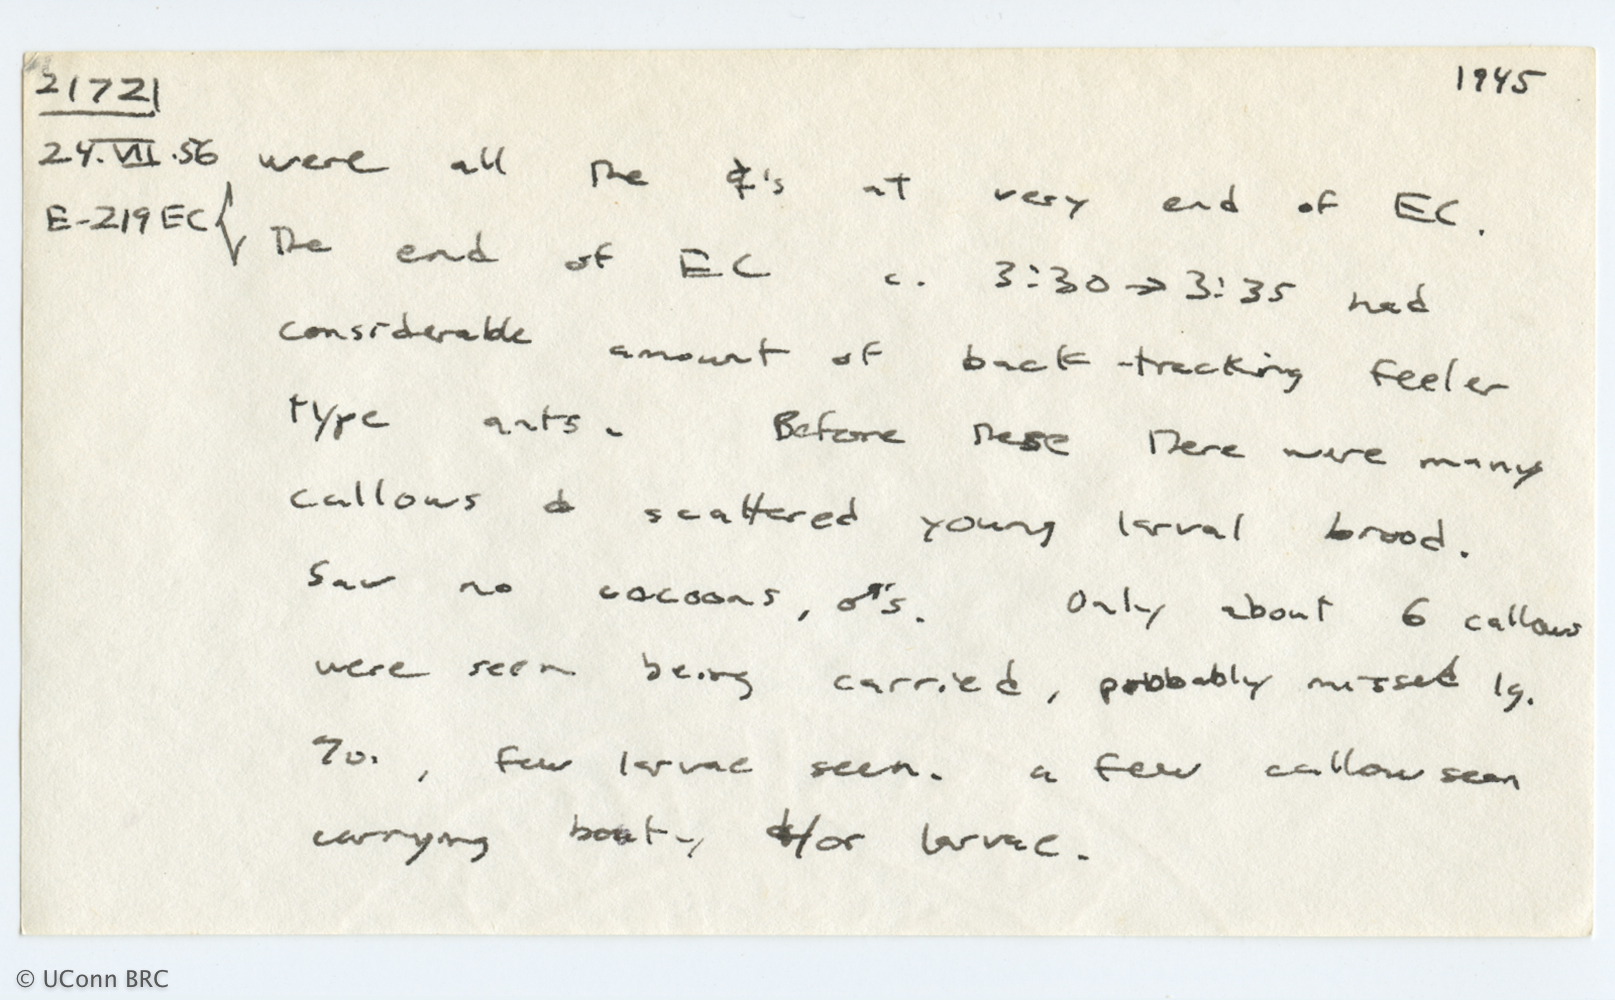 21721
1945
24.VII.56 were all the ☿'s at very end of EC.
E-219 EC { The end of EC c. 3:30 → 3:35 had
considerable amount of back-tracking feeler
type ants. Before these there were many
callows & scattered young larval brood.
Saw no cocoons, ♂'s. Only about 6 callows
were seen being carried, probbably missed lg.
%., few larvae seen. a few callow seen
carrying booty &/or larvae.
© UConn BRC